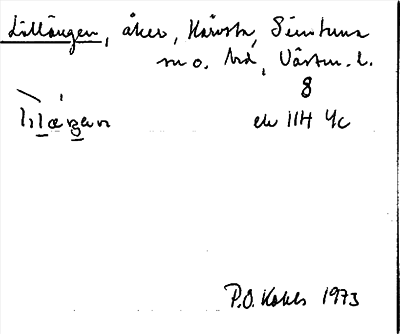 Lillängen, åker, Härvsta, Simtuna
sn o. hd, Västm. l.
8
ek 11H 4c
P.O. Kohls 1973